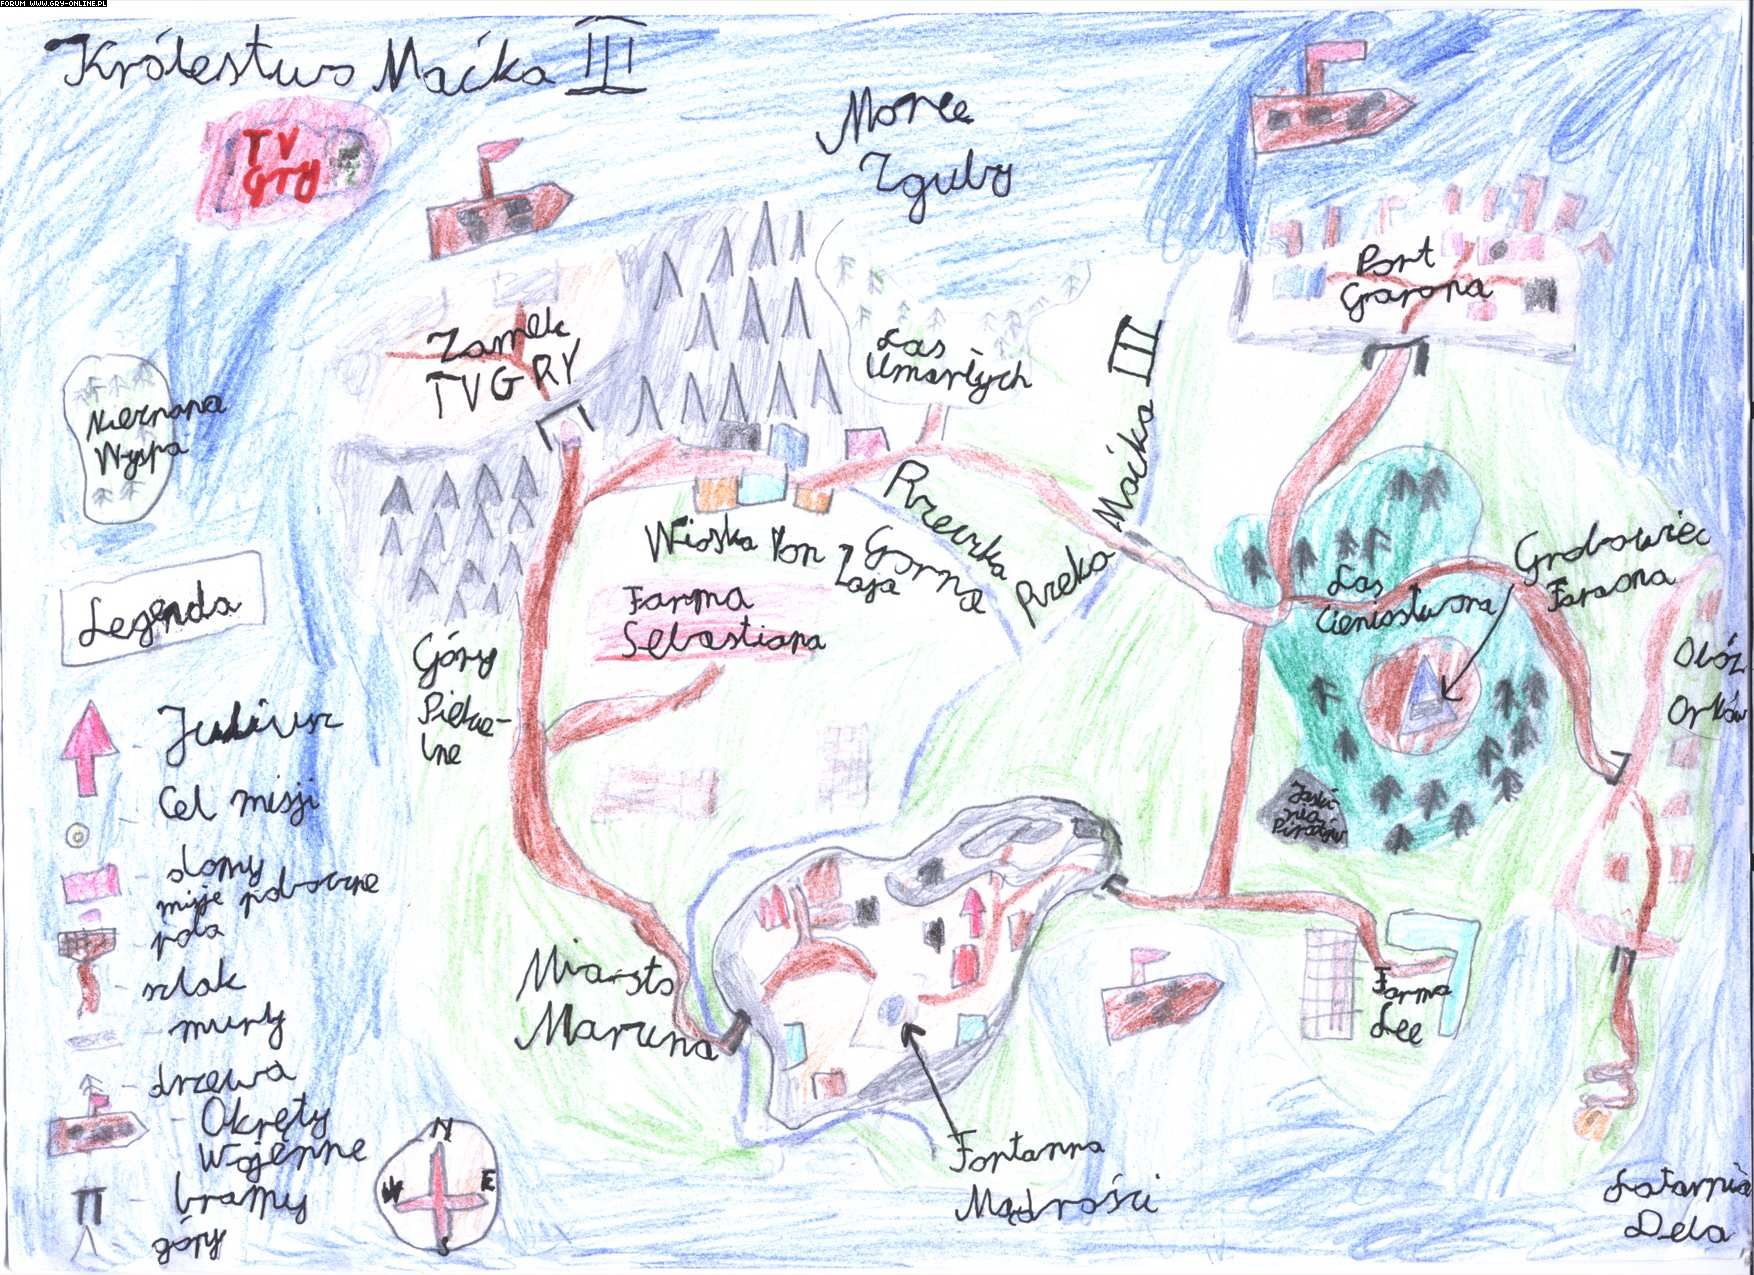 FORUM WWW.GRY-ONLINE.PL
Królestwo Maćka III
TV
Gry
Morze
Zguby
Port
Grarona
Zamek
TVGRY
Las
Umarłych
Nieznana
Wyspa
Rzeka Maćka III
Rzeczka
Gorna
Wioska Yon
Zaja
Farma
Sebastiana
Grobowiec
Faraona
Las
Cieniostwora
Obóz
Orków
Góry
Piekie-
lne
Jaski
nia
Piratów
Miasto
Marzena
Farma
Lee
Fontanna
Mądrości
Latarnia
Dela
Legenda
Judiusz
Cel misji
domy
misje poboczne
pola
szlak
mury
drzewa
Okręty
Wojenne
bramy
góry
N
W E
S